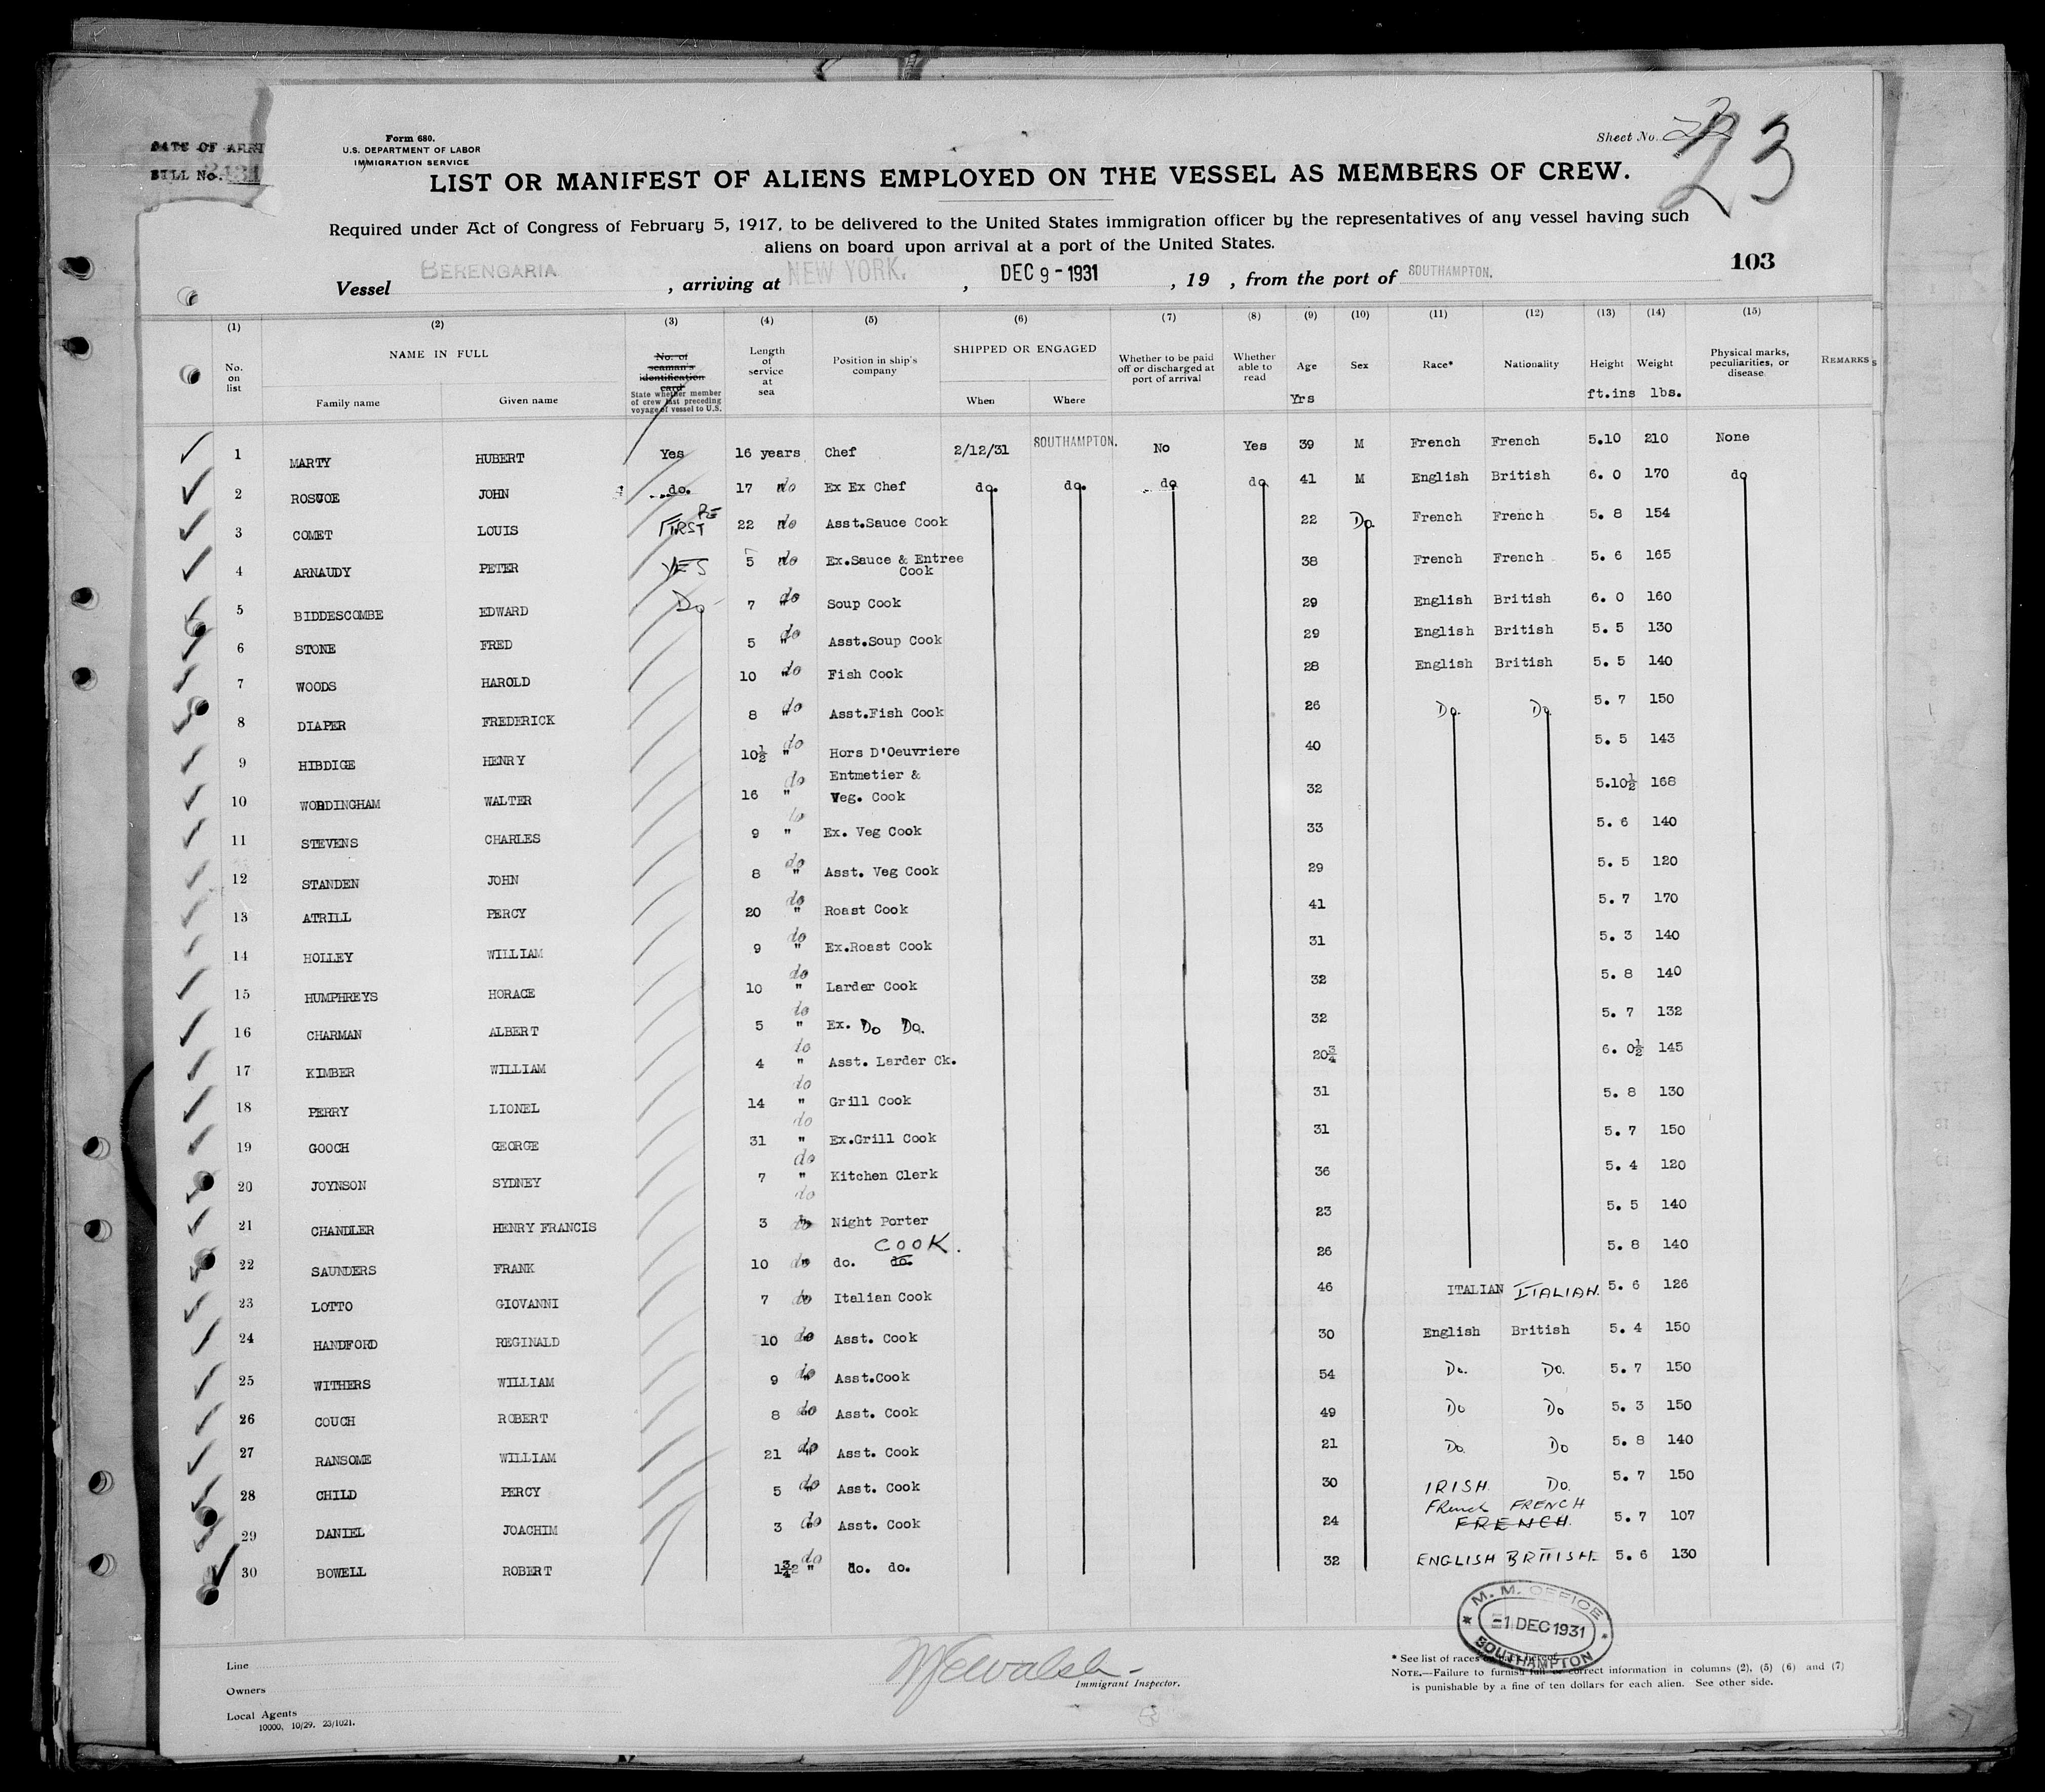 DATE OF ARRI
BILL No.
Form 680.
U.S. DEPARTMENT OF LABOR
IMMIGRATION SERVICE
Sheet No. 23
LIST OR MANIFEST OF ALIENS EMPLOYED ON THE VESSEL AS MEMBERS OF CREW.
Required under Act of Congress of February 5, 1917, to be delivered to the United States immigration officer by the representatives of any vessel having such
aliens on board upon arrival at a port of the United States.
103
Vessel BERENGARIA , arriving at NEW YORK. , DEC 9 - 1931 , 19 , from the port of SOUTHAMPTON.
(1) (2) (3) (4) (5) (6) (7) (8) (9) (10) (11) (12) (13) (14) (15)
No. on list NAME IN FULL Family name Given name No. of seaman's identification card State whether member of crew last preceding voyage of vessel to U.S. Length of service at sea Position in ship's company SHIPPED OR ENGAGED When Where Whether to be paid off or discharged at port of arrival Whether able to read Age Yrs Sex Race* Nationality Height ft.ins Weight lbs. Physical marks, peculiarities, or disease REMARKS
1 MARTY HUBERT Yes 16 years Chef 2/12/31 SOUTHAMPTON. No Yes 39 M French French 5.10 210 None
2 ROSUOE JOHN do. 17 do Ex Ex Chef do. do. do do 41 M English British 6. 0 170 do
3 COMET LOUIS FIRST RE 22 do Asst.Sauce Cook 22 Do. French French 5. 8 154
4 ARNAUDY PETER YES 5 do Ex.Sauce & Entree Cook 38 French French 5. 6 165
5 BIDDESCOMBE EDWARD Do 7 do Soup Cook 29 English British 6. 0 160
6 STONE FRED 5 do Asst.Soup Cook 29 English British 5. 5 130
7 WOODS HAROLD 10 do Fish Cook 28 English British 5. 5 140
8 DIAPER FREDERICK 8 do Asst.Fish Cook 26 Do. Do. 5. 7 150
9 HIBDIGE HENRY 10½ do Hors D'Oeuvriere 40 5. 5 143
10 WORDINGHAM WALTER 16 do Entmetier & Veg. Cook 32 5.10½ 168
11 STEVENS CHARLES 9 do Ex. Veg Cook 33 5. 6 140
12 STANDEN JOHN 8 do Asst. Veg Cook 29 5. 5 120
13 ATRILL PERCY 20 do Roast Cook 41 5. 7 170
14 HOLLEY WILLIAM 9 do Ex.Roast Cook 31 5. 3 140
15 HUMPHREYS HORACE 10 do Larder Cook 32 5. 8 140
16 CHARMAN ALBERT 5 do Ex. Do Do. 32 5. 7 132
17 KIMBER WILLIAM 4 do Asst. Larder Ck. 20¾ 6. 0½ 145
18 PERRY LIONEL 14 do Grill Cook 31 5. 8 130
19 GOOCH GEORGE 31 do Ex.Grill Cook 31 5. 7 150
20 JOYNSON SYDNEY 7 do Kitchen Clerk 36 5. 4 120
21 CHANDLER HENRY FRANCIS 3 do Night Porter 23 5. 5 140
22 SAUNDERS FRANK 10 do do. do. COOK. 26 5. 8 140
23 LOTTO GIOVANNI 7 do Italian Cook 46 ITALIAN ITALIAN. 5. 6 126
24 HANDFORD REGINALD 10 do Asst. Cook 30 English British 5. 4 150
25 WITHERS WILLIAM 9 do Asst.Cook 54 Do. Do. 5. 7 150
26 COUCH ROBERT 8 do Asst. Cook 49 Do Do 5. 3 150
27 RANSOME WILLIAM 21 do Asst. Cook 21 Do. Do 5. 8 140
28 CHILD PERCY 5 do Asst. Cook 30 IRISH. Do. 5. 7 150
29 DANIEL JOACHIM 3 do Asst. Cook 24 French FRENCH FRENCH. 5. 7 107
30 BOWELL ROBERT do do. do. 32 ENGLISH BRITISH. 5. 6 130
M. M. OFFICE
-1 DEC 1931
SOUTHAMPTON
Line
Owners
Local Agents
10000, 10/29. 23/1021.
Walsh
Immigrant Inspector.
* See list of races
NOTE.—Failure to furnish full or correct information in columns (2), (5) (6) and (7)
is punishable by a fine of ten dollars for each alien. See other side.